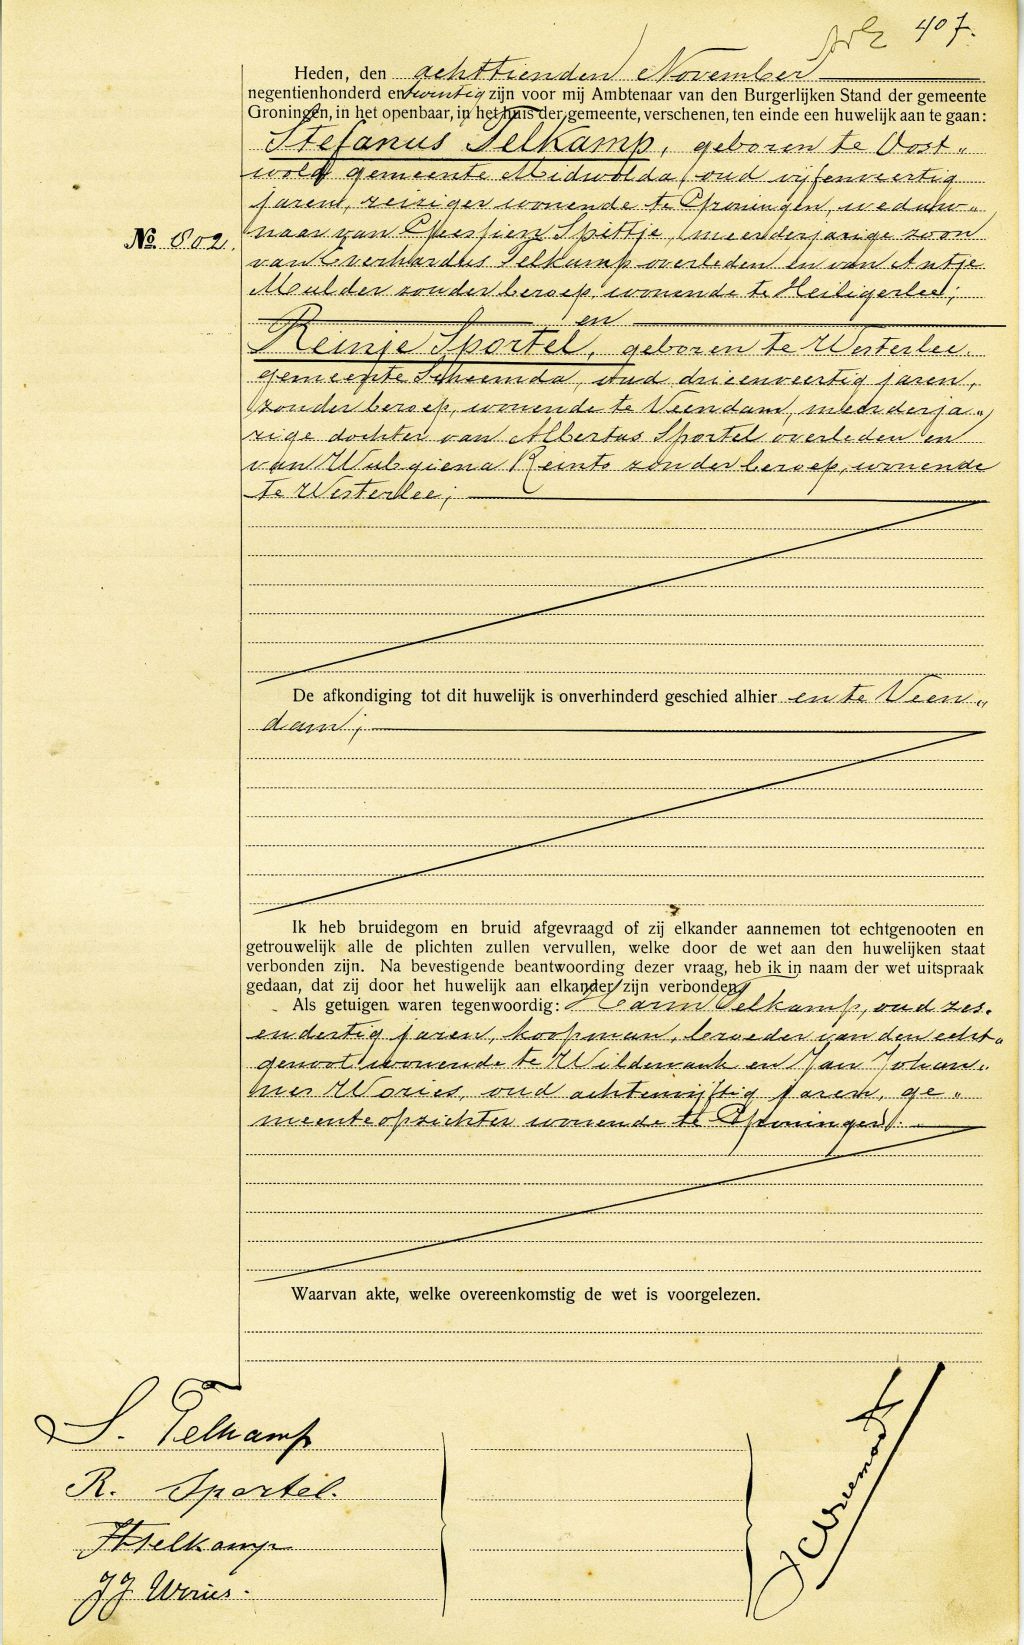 407.
Heden, den achttienden November
negentienhonderd en twintig zijn voor mij Ambtenaar van den Burgerlijken Stand der gemeente
Groningen, in het openbaar, in het huis der gemeente, verschenen, ten einde een huwelijk aan te gaan:
Stefanus Telkamp, geboren te Oost„
wold gemeente Midwolda, oud vijfenveertig
jaren, reiziger wonende te Groningen, weduw„
No 802.
naar van Geessien Spittje, meerderjarige zoon
van Everhardus Telkamp overleden en van Antje
Mulder zonder beroep, wonende te Heiligerlee;
en
Reinje Sportel, geboren te Westerlee.
gemeente Scheemda, oud drieenveertig jaren,
zonder beroep, wonende te Veendam, meerderja„
rige dochter van Albertus Sportel overleden en
van Wubgiena Reints zonder beroep, wonende
te Westerlee;
De afkondiging tot dit huwelijk is onverhinderd geschied alhier en te Veen„
dam;
Ik heb bruidegom en bruid afgevraagd of zij elkander aannemen tot echtgenooten en
getrouwelijk alle de plichten zullen vervullen, welke door de wet aan den huwelijken staat
verbonden zijn. Na bevestigende beantwoording dezer vraag, heb ik in naam der wet uitspraak
gedaan, dat zij door het huwelijk aan elkander zijn verbonden.
Als getuigen waren tegenwoordig: Harm Telkamp, oud zes„
endertig jaren, koopman, broeder van den echt„
genoot wonende te Wildervank en Jan Johan„
nes Wories, oud achtenvijftig jaren, ge„
meenteopzichter wonende te Groningen.
Waarvan akte, welke overeenkomstig de wet is voorgelezen.
S. Telkamp
R. Sportel.
H Telkamp
JJ Wories.